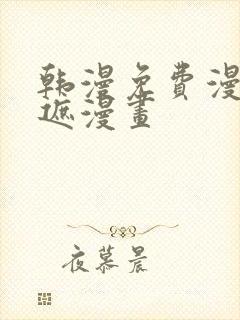 韩漫免费漫
遮漫畫
夜慕晨